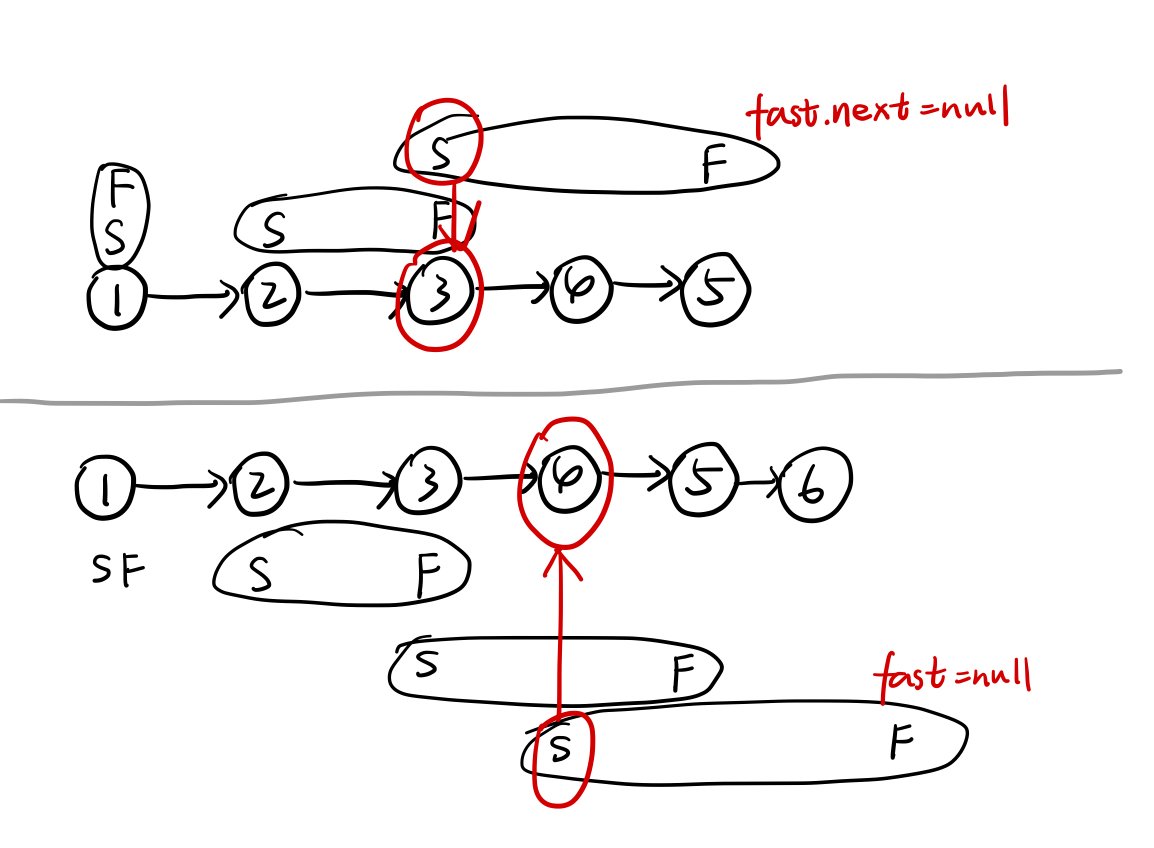 fast.next=null
S F
F
S
S F
1 2 3 4 5
1 2 3 4 5 6
S F
S F
S F
fast=null
S F